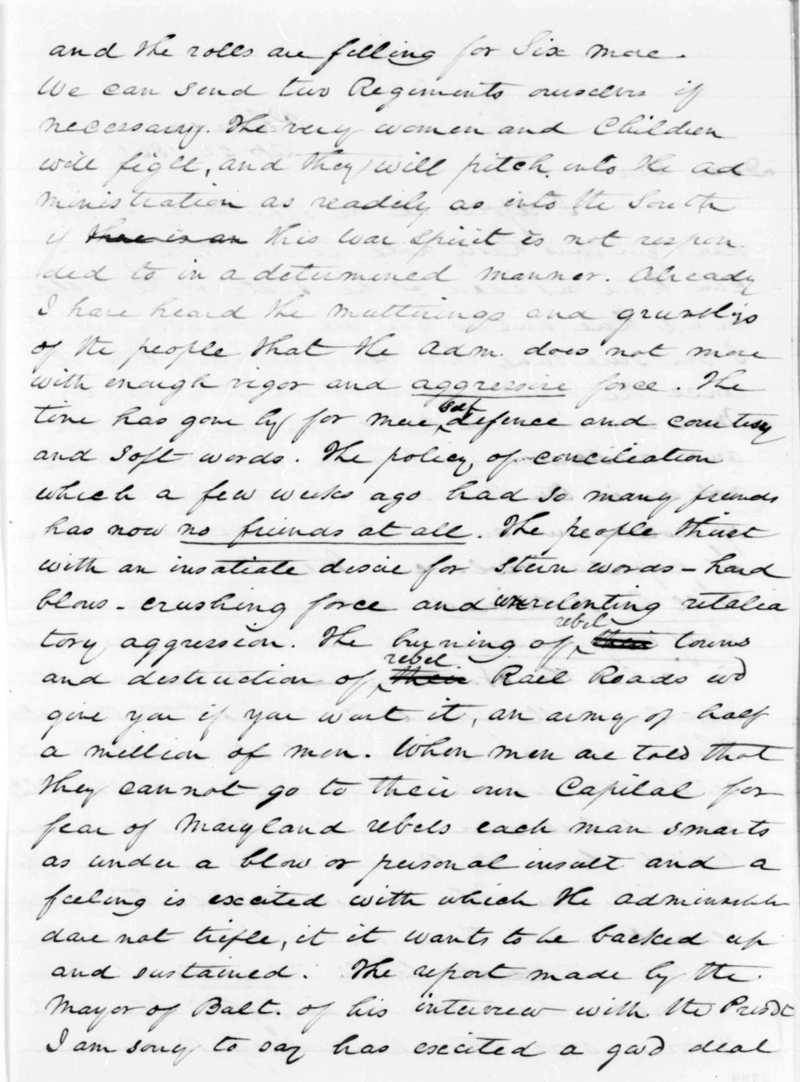 and the rolls are filling for Six more.
We can send two Regiments ourselves if
necessary. The very women and Children
will fight, and they will pitch into the ad
ministration as readily as into the South
if there is an this war spirit is not respon
ded to in a determined manner. Already
I have heard the mutterings and
of the people that the Adm. does not move
with enough vigor and aggressive force. The
time has gone by for mere self defence and courtesy
and soft words. The policy of conciliation
which a few weeks ago had so many friends
has now no friends at all. The people thirst
with an insatiate desire for stern words - hard
blows - crushing force and unrelenting retalia
tory aggression. The burning of rebel their towns
and destruction of rebel their Rail Roads wd
give you if you want it, an army of half
a million of men. When men are told that
they cannot go to their own Capital for
fear of Maryland rebels each man smarts
as under a blow or personal insult and a
feeling is excited with which the
dare not trifle, it it wants to be backed up
and sustained. The report made by the
Mayor of Balt. of his interview with the Presdt
I am sorry to say has excited a good deal